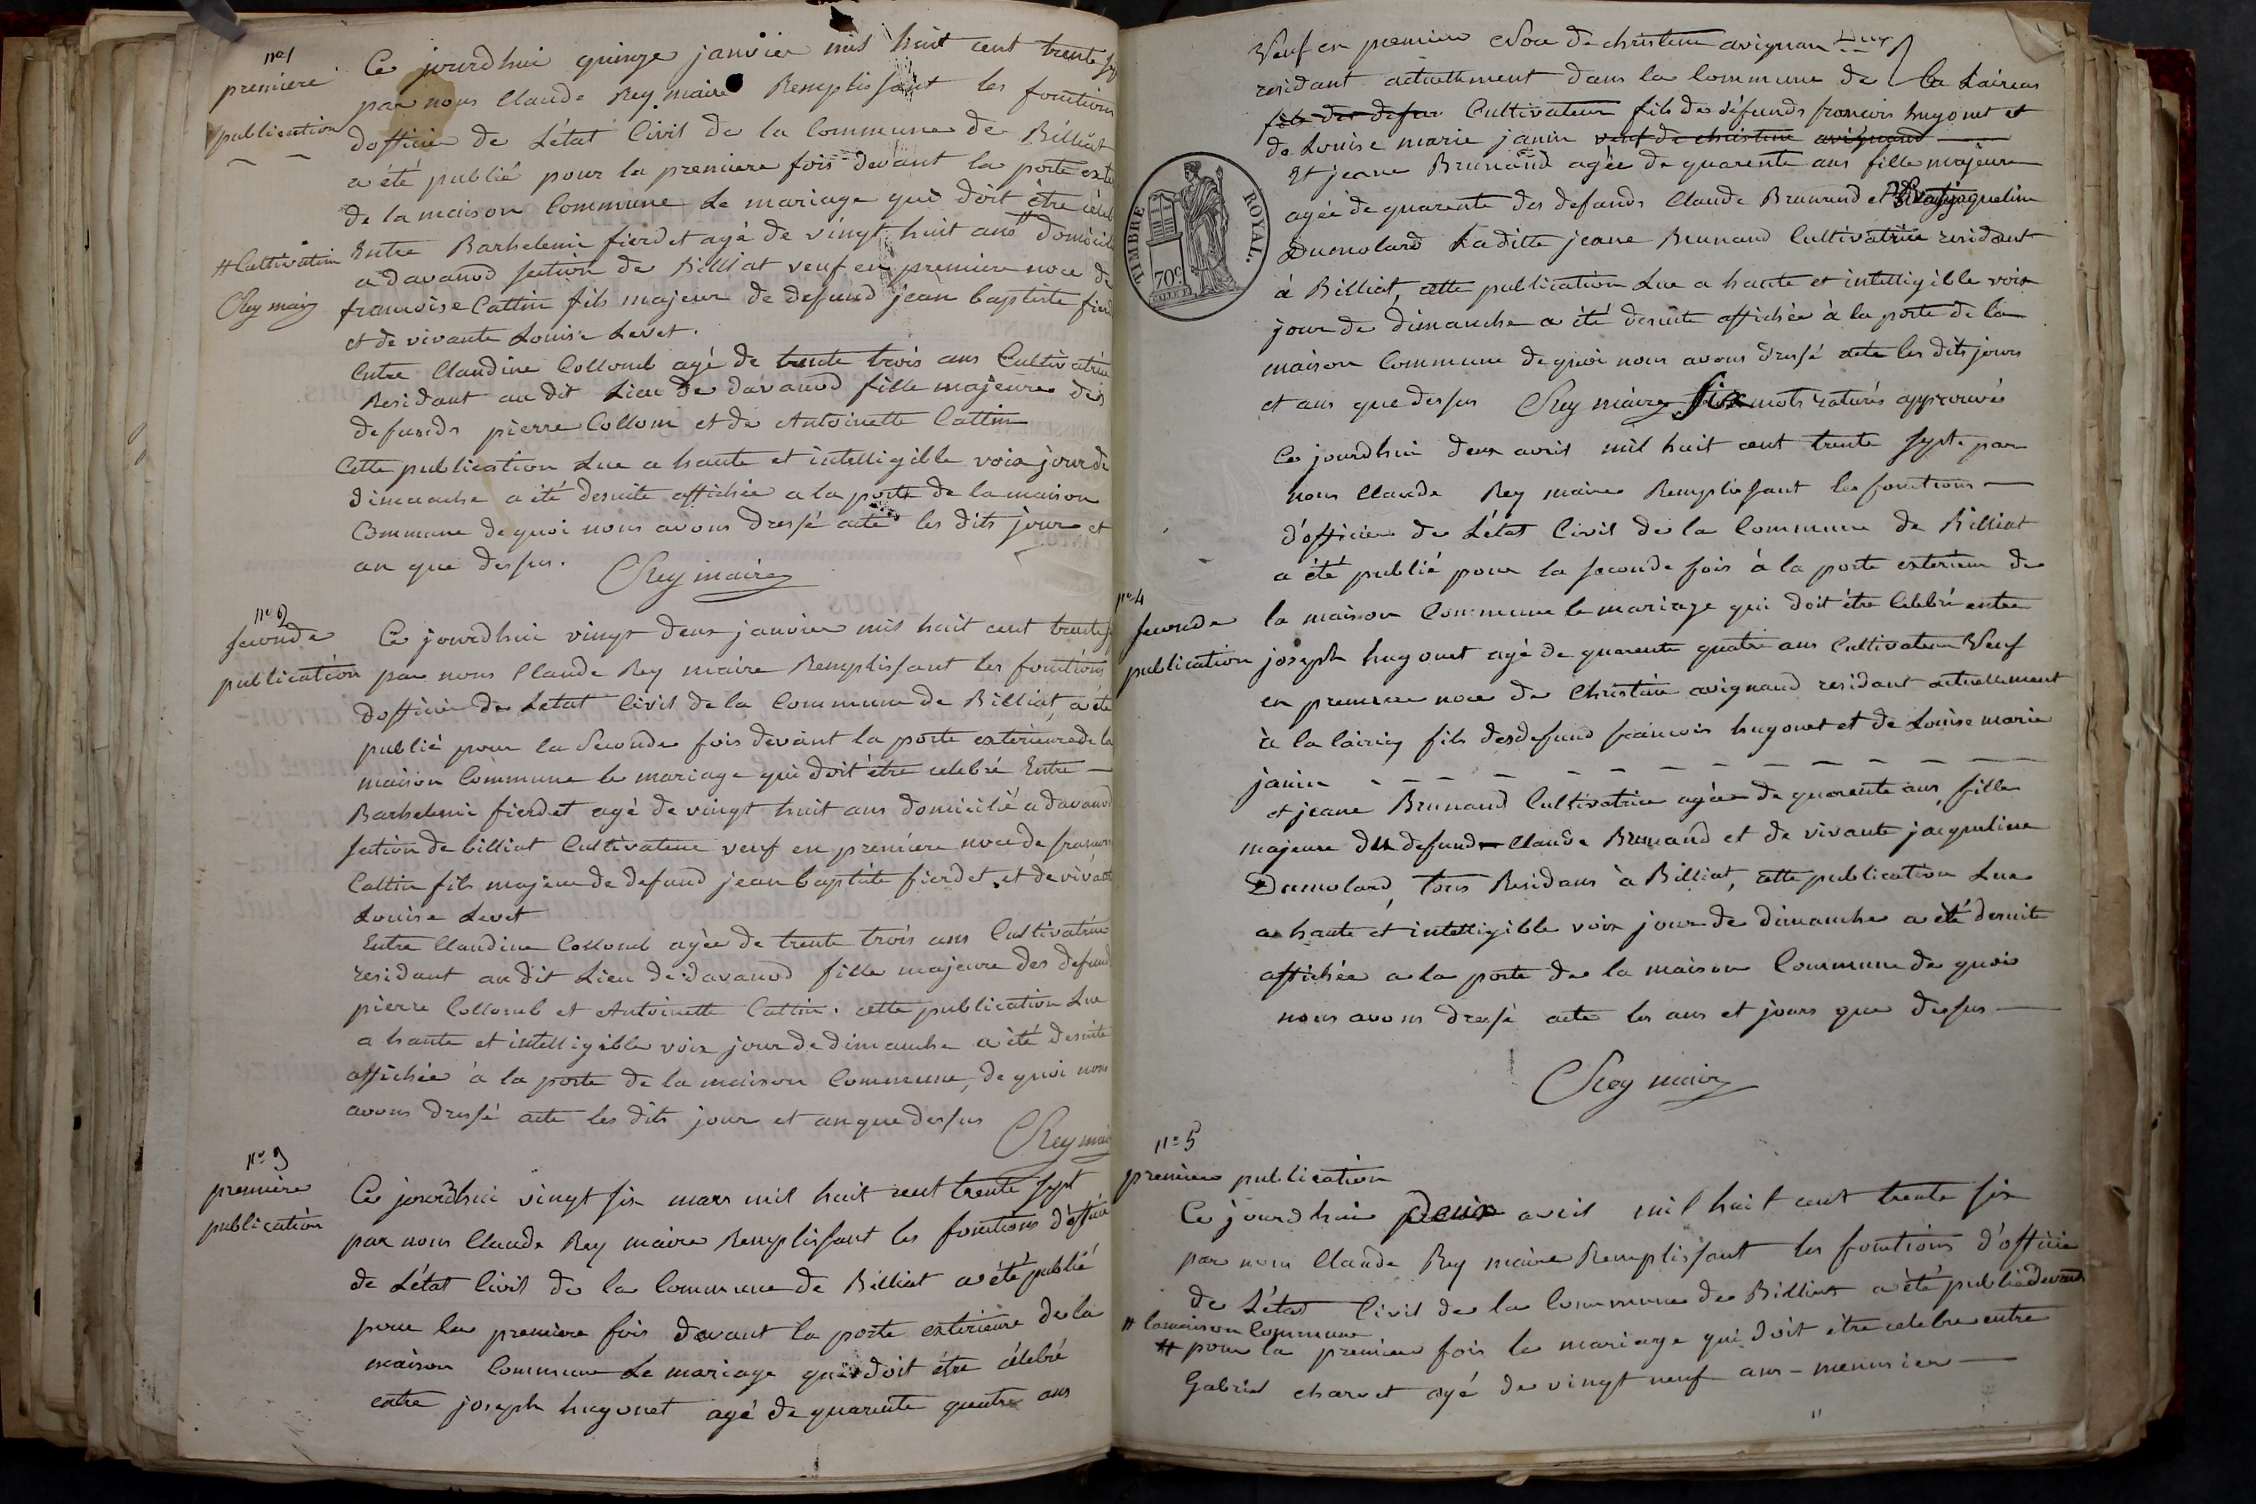 nº 1
première
publication
Ce jourdhui quinze janvier mil huit cent trente sep
par nous Claude Rey maire Remplissant les fonctions
dofficie de L'état Civil de la Commune de Billiat
a été publié pour la premiere fois devant la porte exte
de la maison Commune Le mariage qui doit être céleb
Entre Barhelemi fierdet agé de vingt huit ans # domicil
# Cultivateur
Rey maire
a davanod section de Billiat veuf en premiere noce de
francoise Cattin fils majeur de defund jean baptiste fierd
et de vivante Louise Levet.
Entre Claudine Collomb agé de trente trois ans Cultivatrice
Residant au dit Lieu de davanod fille majeure des
defunds pierre Collom et de Antoinette Cattin
Cette publication Lue a haute et intelligible voix jour de
dimanche a été desuite affichée a la porte de la maison
Commune de quoi nous avons dressé acte les dits jour et
an que dessus. CRey maire
nº 2
seconde
publication
Ce jourdhui vingt deux janvier mil huit cent trente s
par nous Claude Rey maire Remplissant les fonctions
dofficie de Létat Civil de la Commune de Billiat, a été
publié pour la Seconde fois devant la porte exterieure de la
maison Commune le mariage qui doit être celebré Entre —
Barhelemi fierdet agé de vingt huit ans domicilié a davanod
section de billiat Cultivateur veuf en premiere noce de francois
Cattin fils majeur de defund jean baptiste fierdet, et de vivante
Louise Levet
Entre Claudine Collomb agée de trente trois ans Cultivatrice
residant au dit Lieu de davanod fille majeure des defund
pierre Collomb et Antoinette Cattin. cette publication Lue
a haute et intelligible voix jour de dimanche a été desuite
affichée à la porte de la maison Commune, de quoi nous
avons dressé acte les dits jour et an que dessus
CRey mair
nº 3
première
publication
Ce jourdhui vingt six mars mil huit cent trente sept
par nous Claude Rey maire Remplissant les fonctions d'officie
de L'état Civil de la Commune de Billiat a été publié
pour la premiere fois devant la porte extérieure de la
maison Commune Le mariage qui doit être célebré
entre joseph hugonet agé de quarente quatre ans
Veuf en premiere Noce de christine avignan
residant actuellement dans la Commune de La Laireas
fils des defun Cultivateur fils des défunds francois hugonet et
de Louise marie janin veuf de christine avignand —
Et jeane Brunand agée de quarente ans fille majeure
agée de quarente des defunds Claude Brunand et jaqueline
Dumolard Laditte jeane Brunand Cultivatrice residant
à Billiat, cette publication Lue a haute et intelligible voix
jour de dimanche a été desuite affichée à la porte de la
maison Commune de quoi nous avons dressé acte les dits jours
et ans que dessus CRey maire six mots raturés approuvés
TIMBRE ROYAL.
70c
Ce jourdhui deux avril mil huit cent trente sept. par
nous Claude Rey maire Remplissant les fonctions —
d'officie de L'état Civil de la Commune de Billiat
a été publié pour la seconde fois à la porte exterieure de
nº 4
seconde
publication
la maison Commune le mariage qui doit être Celebré entre
joseph hugonet agé de quarente quatre ans Cultivateur Veuf
en premiere noce de Christine avignand residant actuellement
à la lairiey fils des defund francois hugonet et de Louise marie
janin — — — — — — — — — —
et jeane Brunand Cultivatrice agée de quarente ans, fille
majeure du defund Claude Brunand et de vivante jacqueline
Dumolard, tous Residans à Billiat, cette publication Lue
a haute et intelligible voix jour de dimanche a été desuite
affichée a la porte de la maison Commune de quoi
nous avons dressé acte les ans et jours que dessus —
CRey maire
nº 5
premiere publication
Ce jourdhui Deux avril mil huit cent trente six
par nous Claude Rey maire Remplissant les fonctions d'officie
de L'état Civil de la Commune de Billiat a été publié devant
# la maison Commune
# pour la premiere fois le mariage qui doit être celebre entre
Gabriel charvet agé de vingt neuf ans - menusier —